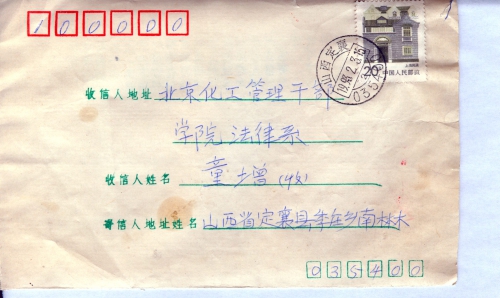 100000
20
中国人民邮政
山西定襄
收信人地址 北京化工管理干部
学院法律系
收信人姓名 童增(收)
寄信人地址姓名 山西省定襄县季庄乡南林木
035400